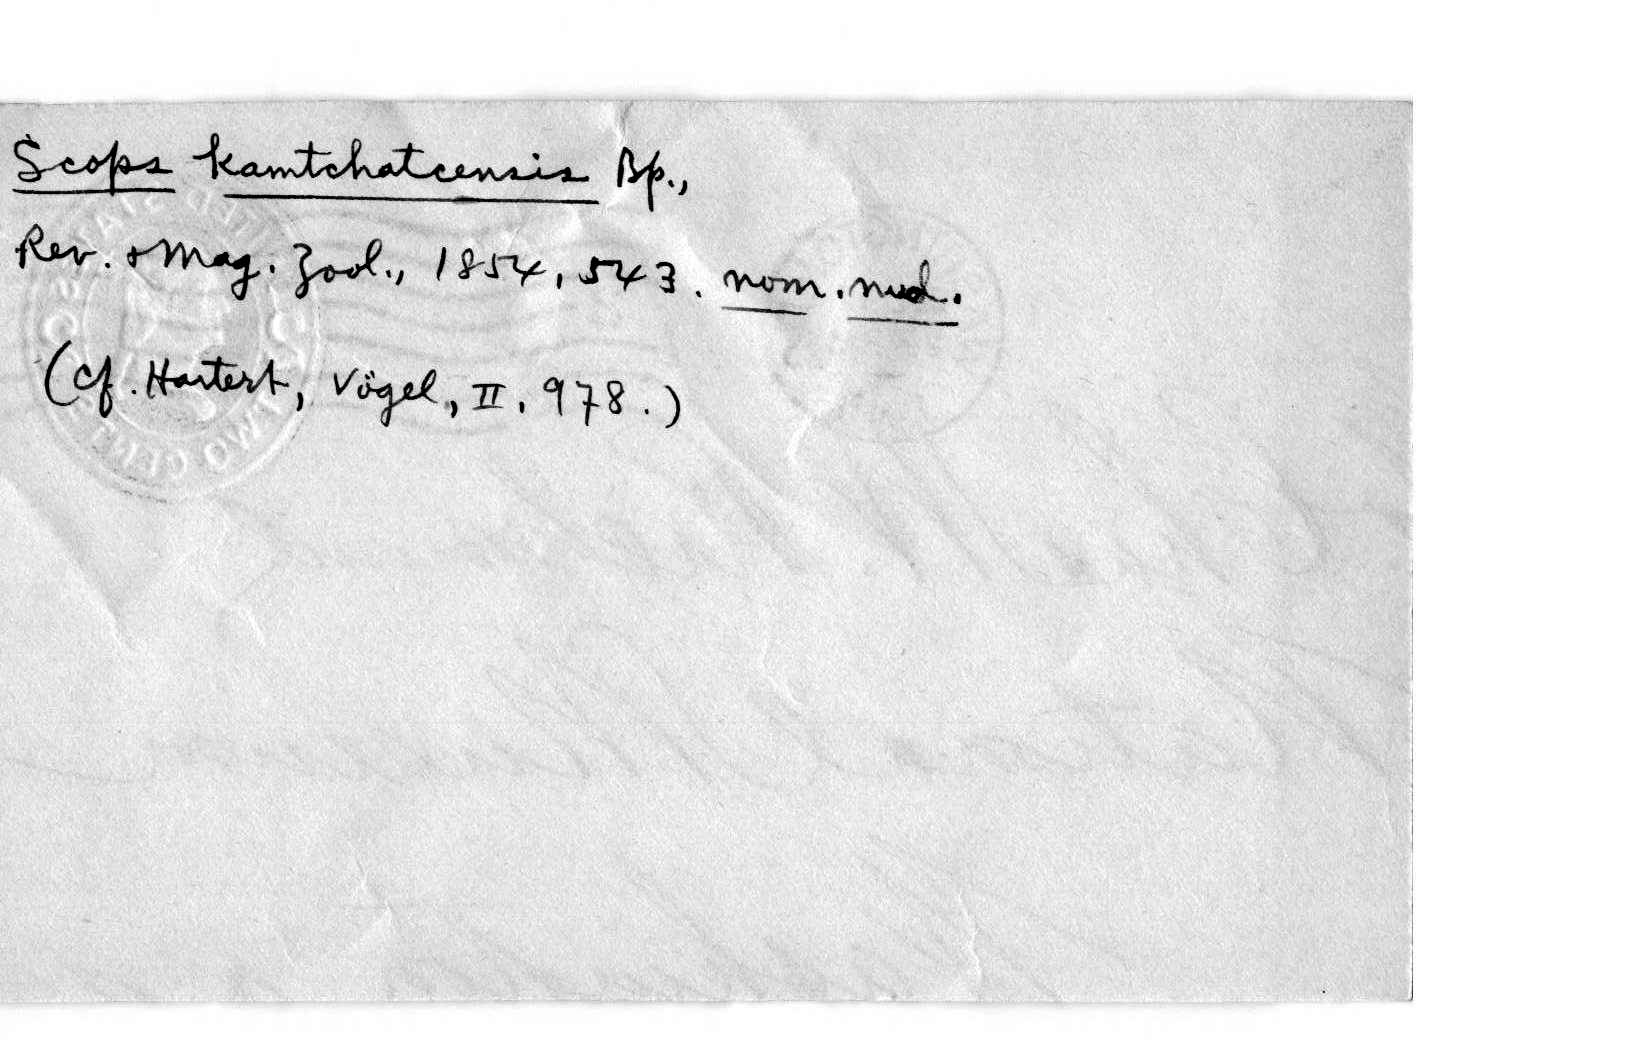 Scops kamtchatcensis Bp.,
Rev. & Mag. Zool., 1854, 543. nom. nud.
(cf. Hartert, Vögel, II, 978.)